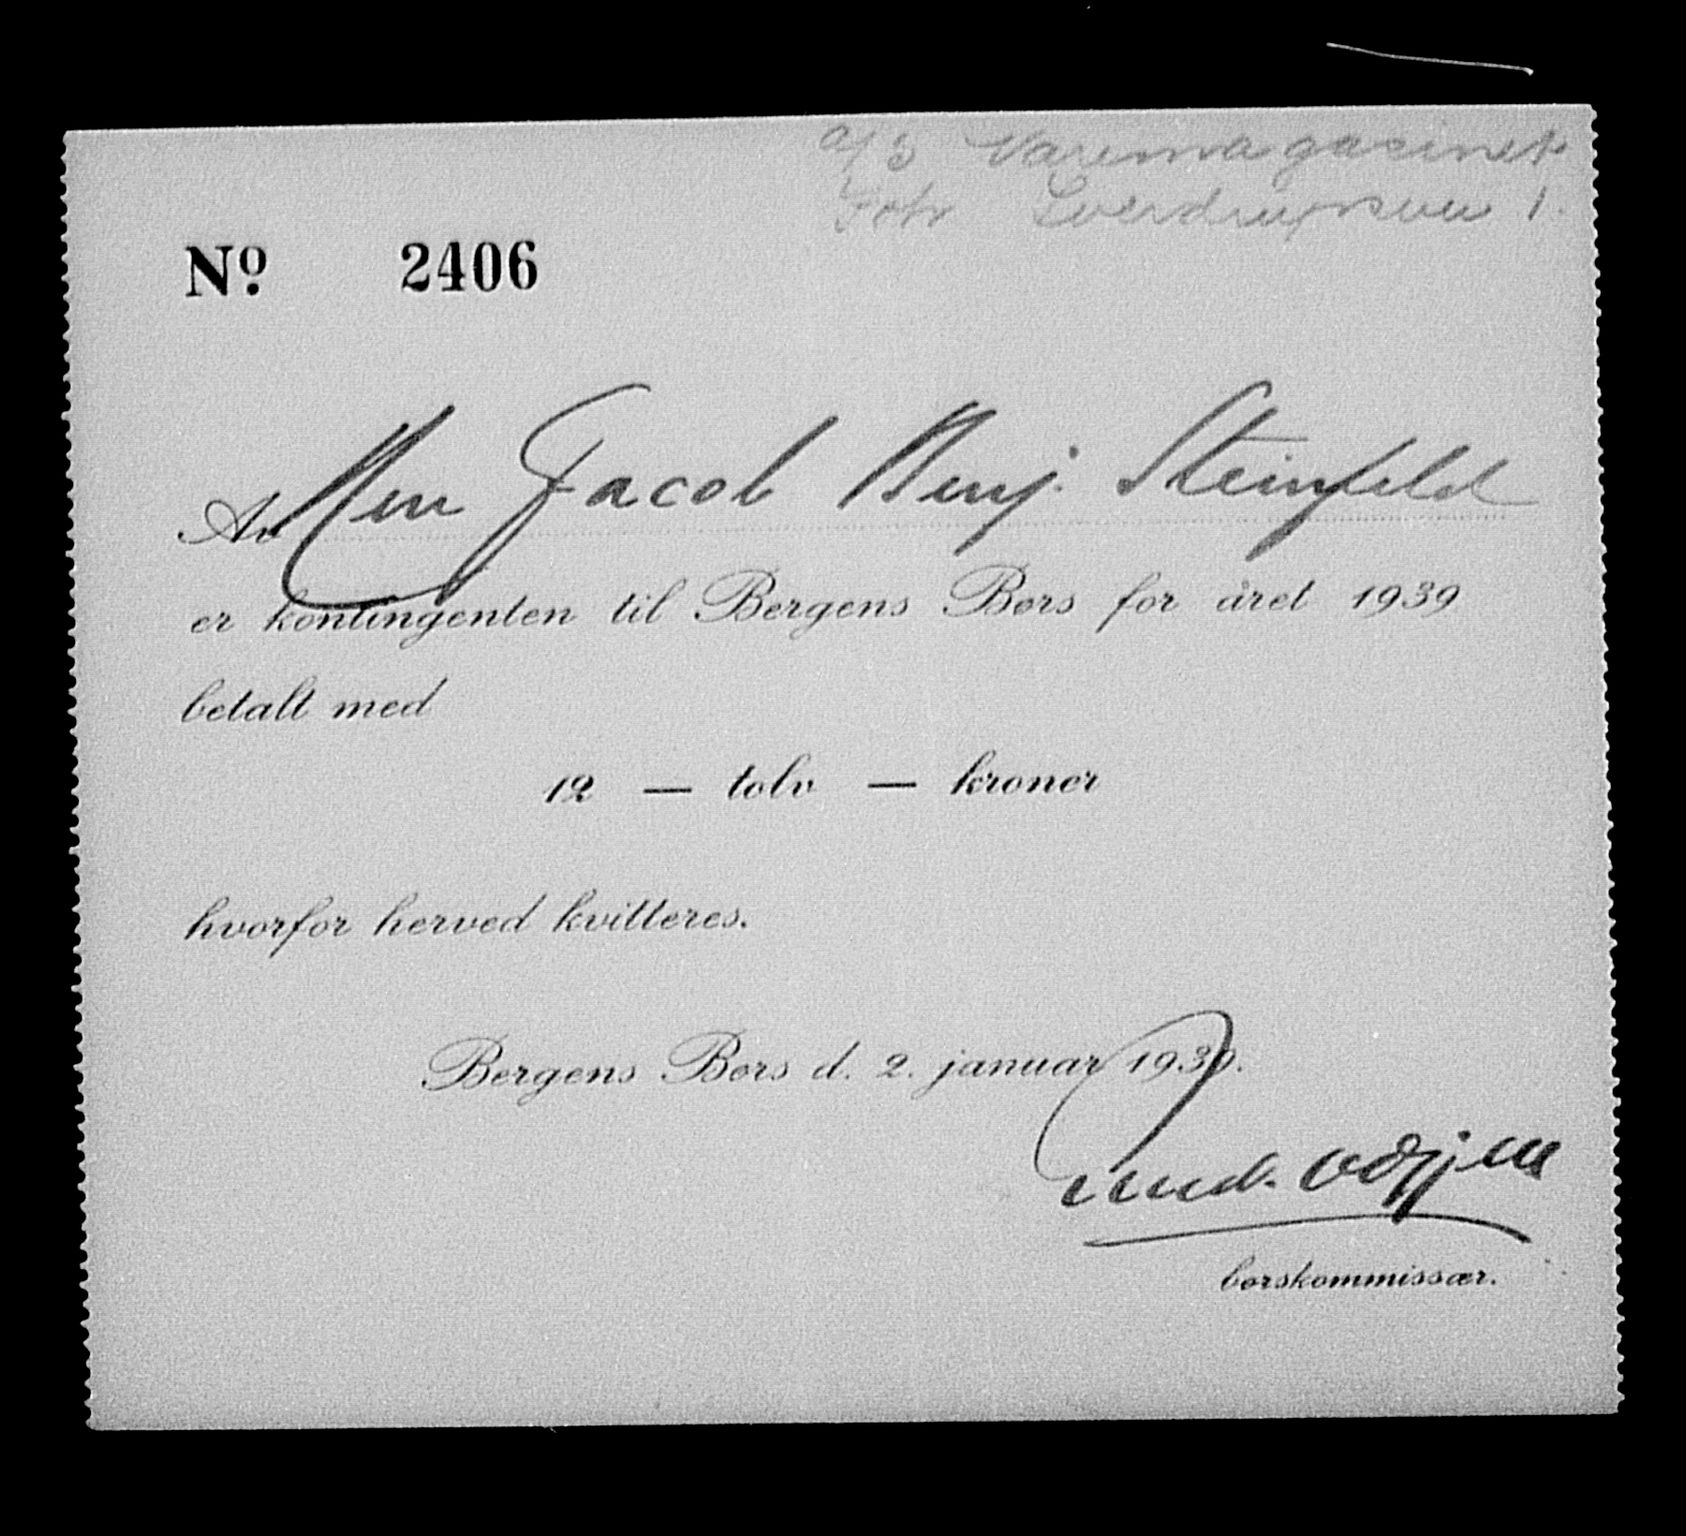 a/s Varemagasinet
Joh Sverdrupsvei 1.
Nº 2406
Av Herr Jacob Benj. Steinfeld
er kontingenten til Bergens Børs for året 1939
betalt med
12 — tolv — kroner
hvorfor herved kvitteres.
Bergens Børs d. 2. januar 1939.
børskommissær.